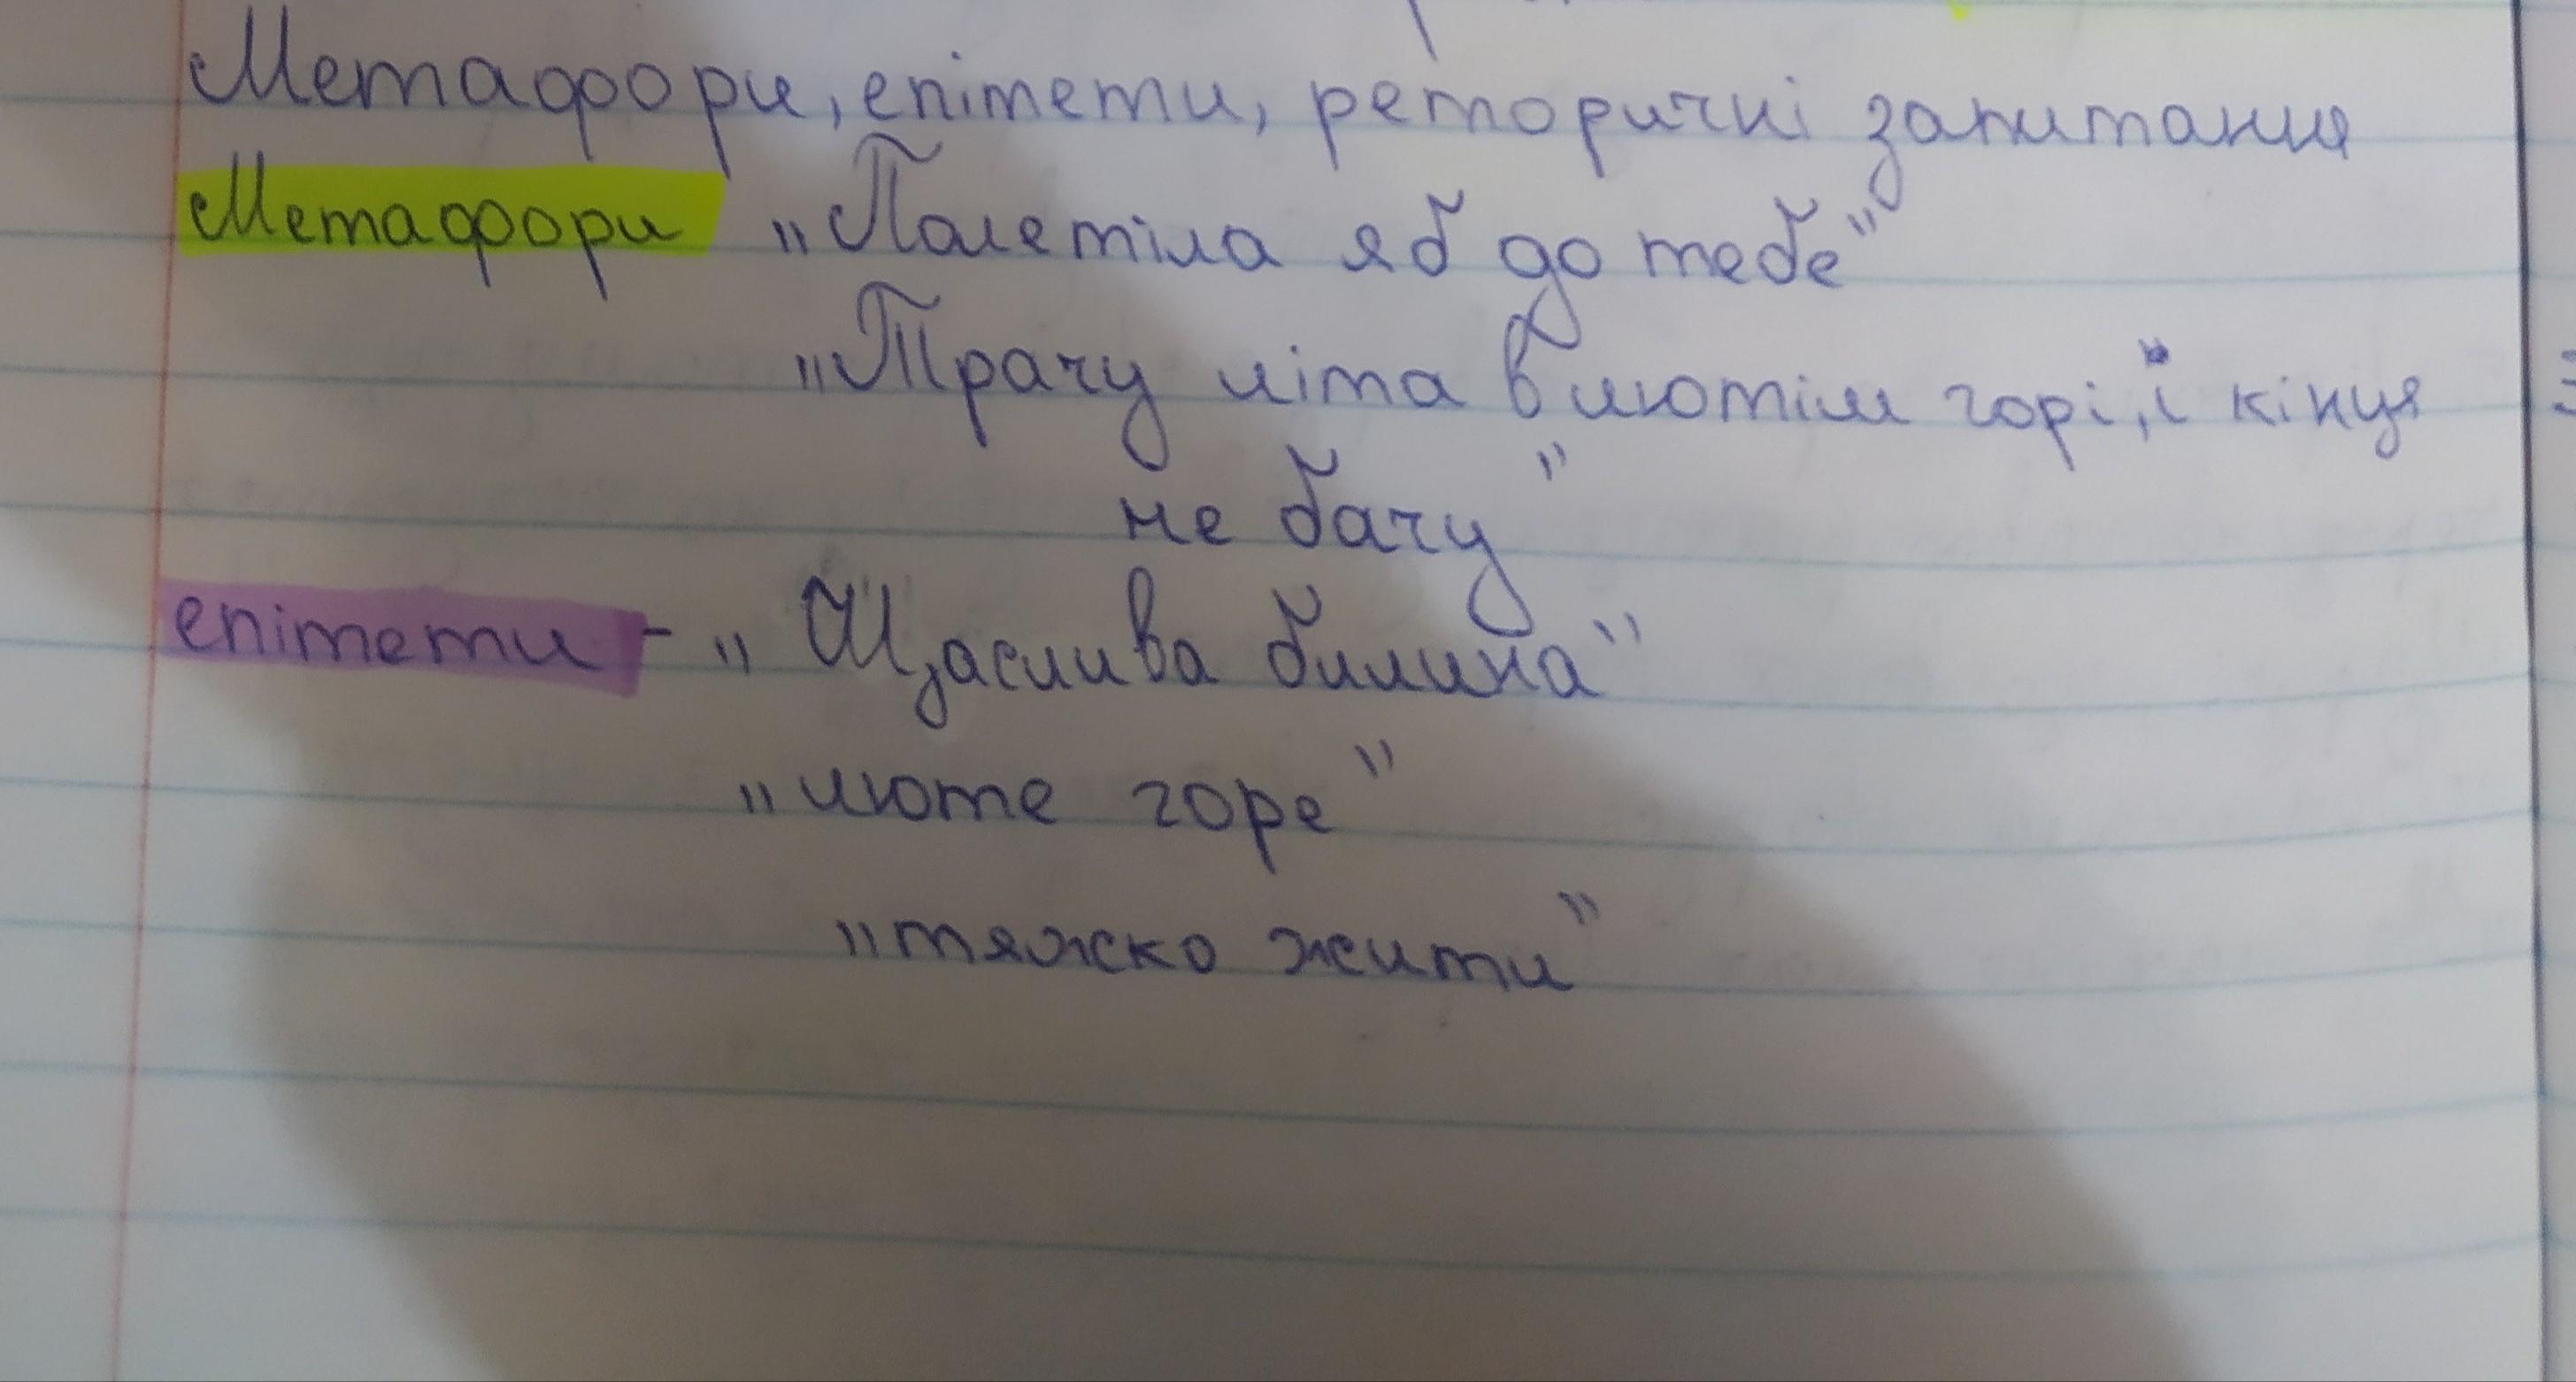 Метафори, епітети, реторичні запитання
Метафори „Полетіла я б до тебе”
„Трачу літа в лютім горі, і кінця
не бачу”
епітети - „Щаслива билина”
„люте горе”
„тяжко жити”